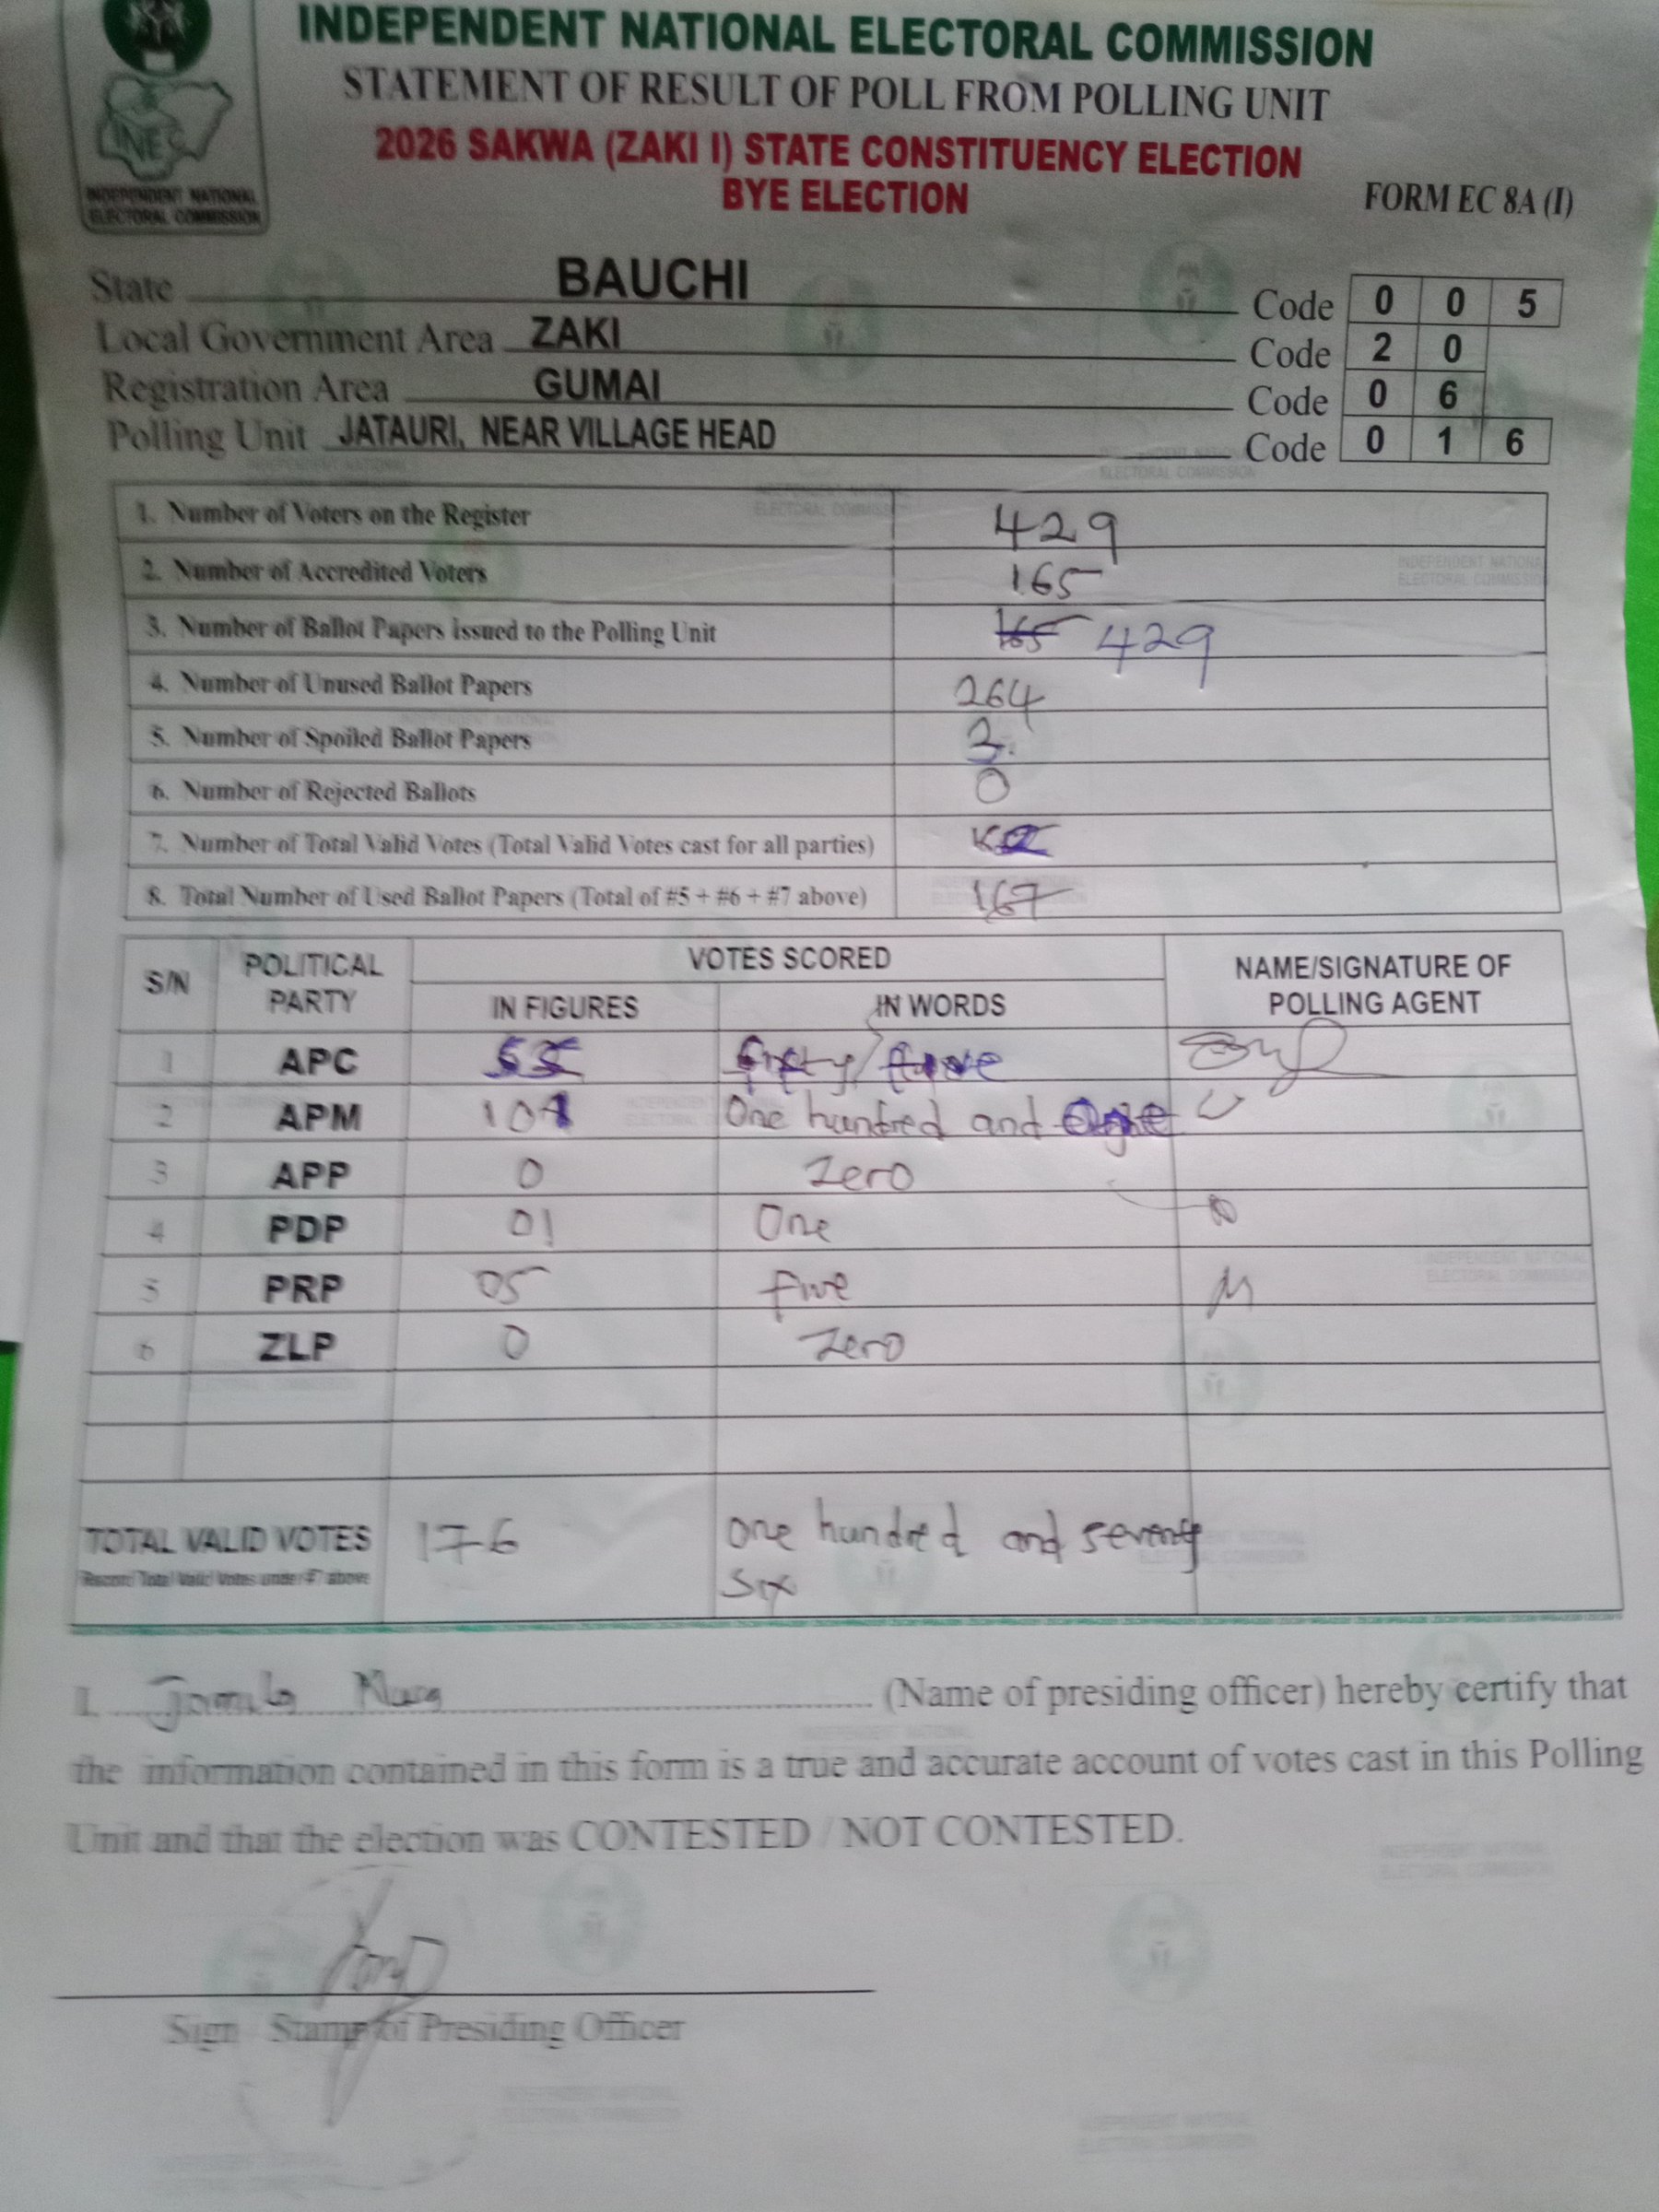 INDEPENDENT NATIONAL ELECTORAL COMMISSION
STATEMENT OF RESULT OF POLL FROM POLLING UNIT
2026 SAKWA (ZAKI I) STATE CONSTITUENCY ELECTION
BYE ELECTION
FORM EC 8A (I)
INEC
INDEPENDENT NATIONAL
ELECTORAL COMMISSION
State BAUCHI Code 0 0 5
Local Government Area ZAKI Code 2 0
Registration Area GUMAI Code 0 6
Polling Unit JATAURI, NEAR VILLAGE HEAD Code 0 1 6
1. Number of Voters on the Register 429
2. Number of Accredited Voters 165
3. Number of Ballot Papers issued to the Polling Unit 165 429
4. Number of Unused Ballot Papers 264
5. Number of Spoiled Ballot Papers
6. Number of Rejected Ballots 0
7. Number of Total Valid Votes (Total Valid Votes cast for all parties)
8. Total Number of Used Ballot Papers (Total of #5 + #6 + #7 above) 167
S/N POLITICAL PARTY VOTES SCORED NAME/SIGNATURE OF POLLING AGENT
IN FIGURES IN WORDS
1 APC
2 APM One hundred and
3 APP 0 Zero
4 PDP 01 One
5 PRP 05 five
6 ZLP 0 Zero
TOTAL VALID VOTES 176 One hundred and seventy
Record Total Valid Votes under #7 above six
I. (Name of presiding officer) hereby certify that
the information contained in this form is a true and accurate account of votes cast in this Polling
Unit and that the election was CONTESTED / NOT CONTESTED.
Sign / Stamp of Presiding Officer